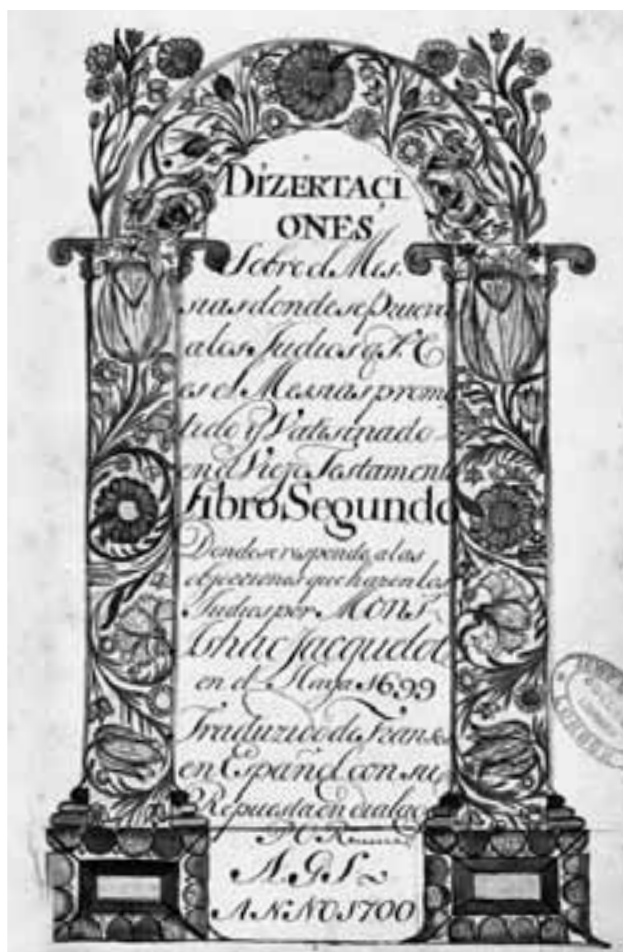 DIZERTAÇI
ONES
Sobre el Mes
sias donde se Prueva
a los Judios q J. C
es el Messias prome
tido y Vatisinado
en el Viejo Testamento
Libro Segundo
Donde se responde a las
objecciones que hazen los
Judios por MONS
Jacquelot
en el Haya 1699
Traduzido de Franses
en Español con su
Repuesta en dialago
A. G. S
ANNO 1700